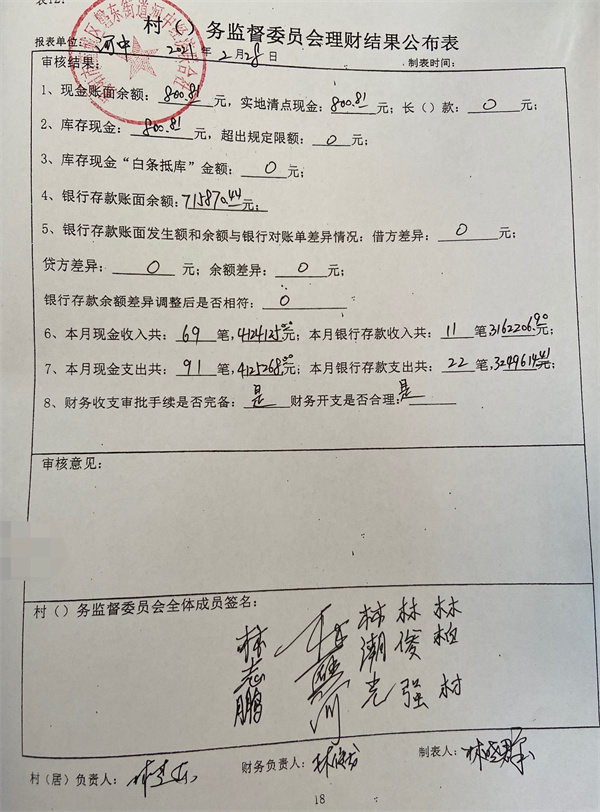 表12:
村（）务监督委员会理财结果公布表
报表单位: 河中 2021年2月28日 制表时间:
审核结果:
1、现金账面余额: 800.81元, 实地清点现金: 800.81元; 长（）款: 0元;
2、库存现金: 800.81元, 超出规定限额: 0元;
3、库存现金“白条抵库”金额: 0元;
4、银行存款账面余额: 715870.44元;
5、银行存款账面发生额和余额与银行对账单差异情况: 借方差异: 0元;
贷方差异: 0元; 余额差异: 0元;
银行存款余额差异调整后是否相符: 0
6、本月现金收入共: 69笔, 424125.00元; 本月银行存款收入共: 11笔3162206.90元;
7、本月现金支出共: 91笔, 425268.00元; 本月银行存款支出共: 22笔, 3249614.41元;
8、财务收支审批手续是否完备: 是 财务开支是否合理: 是
审核意见:
村（）务监督委员会全体成员签名:
林志鹏 林潮光 林俊强 林柏村
村（居）负责人: 财务负责人: 制表人:
18